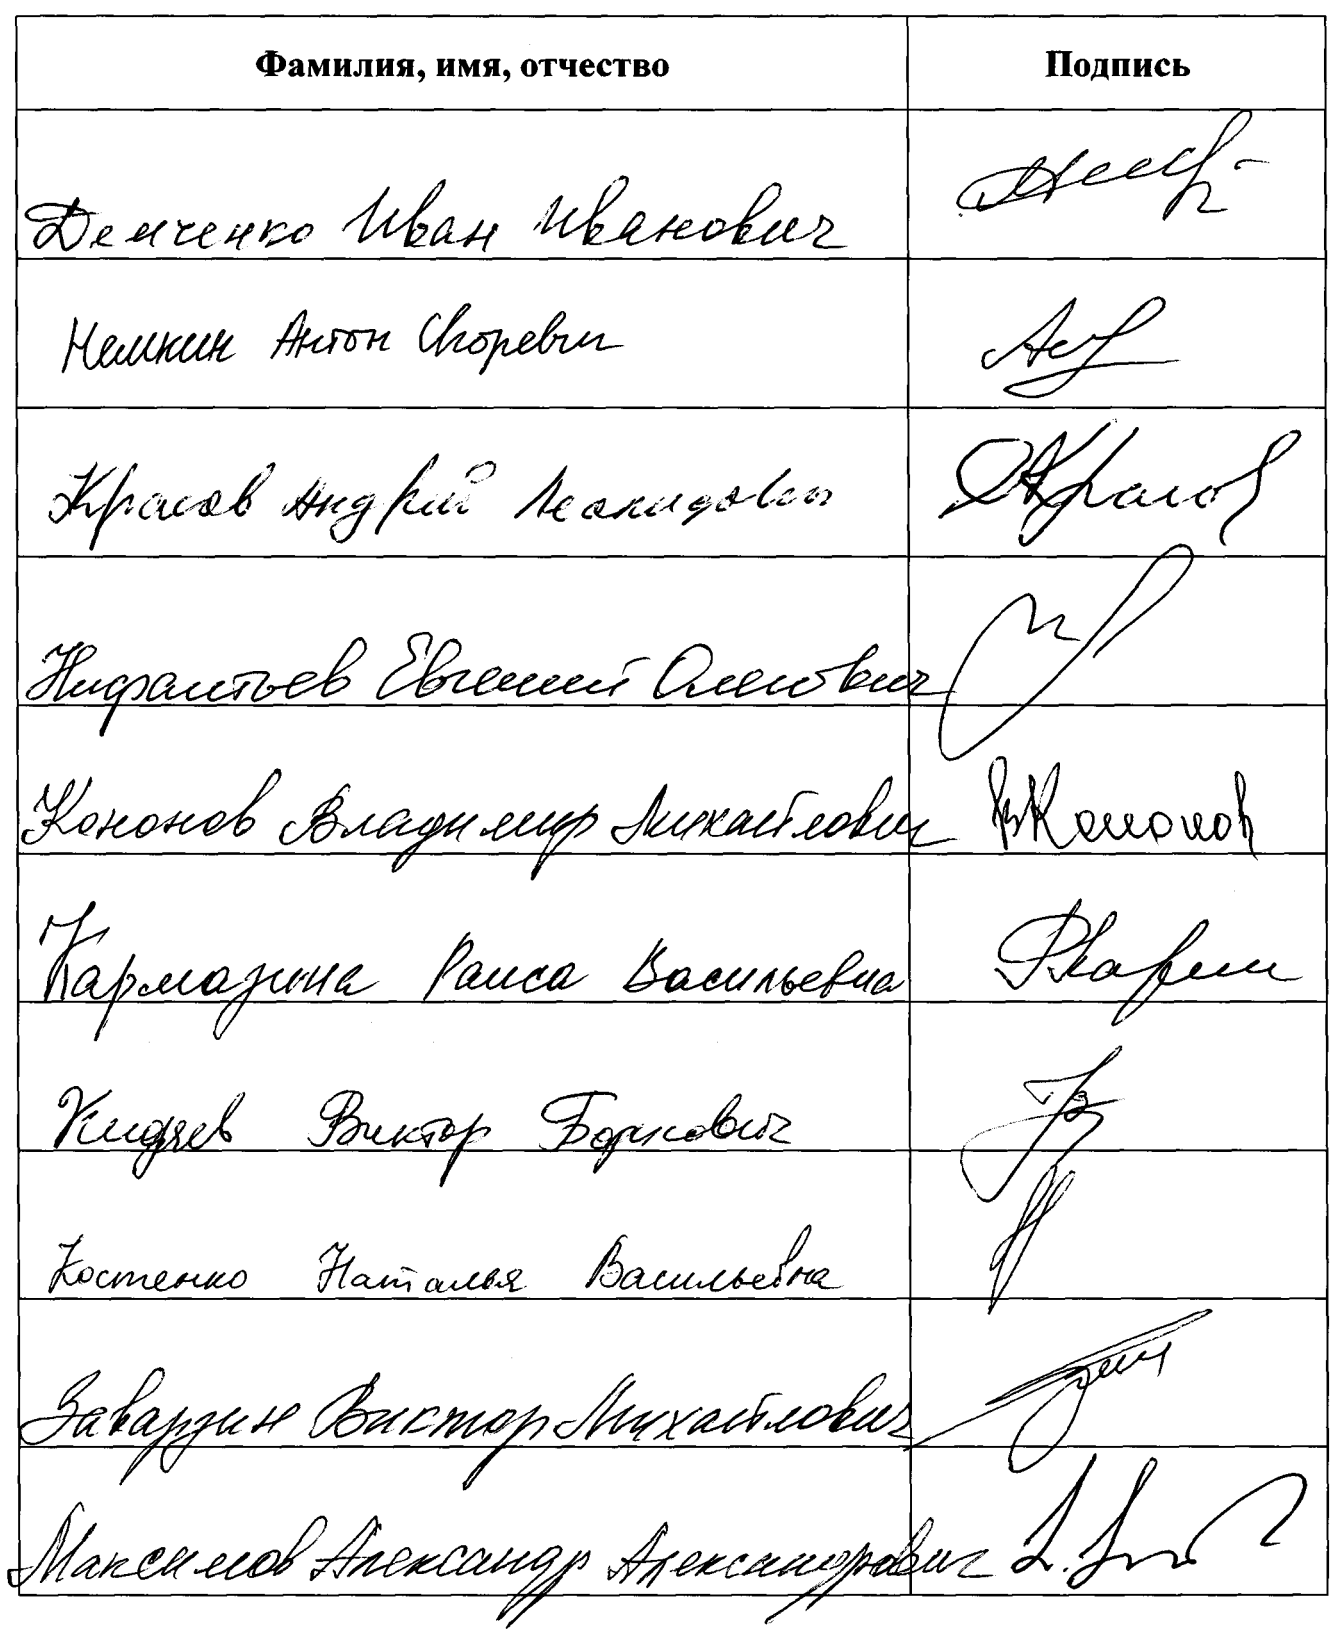 Фамилия, имя, отчество Подпись
Демченко Иван Иванович
Немкин Антон Игоревич
Красов Андрей Леонидович
Нифантьев Евгений Олегович
Кононов Владимир Михайлович ВКононов
Кармазина Раиса Васильевна
Кидяев Виктор Борисович
Костенко Наталья Васильевна
Заварзин Виктор Михайлович
Максимов Александр Александрович